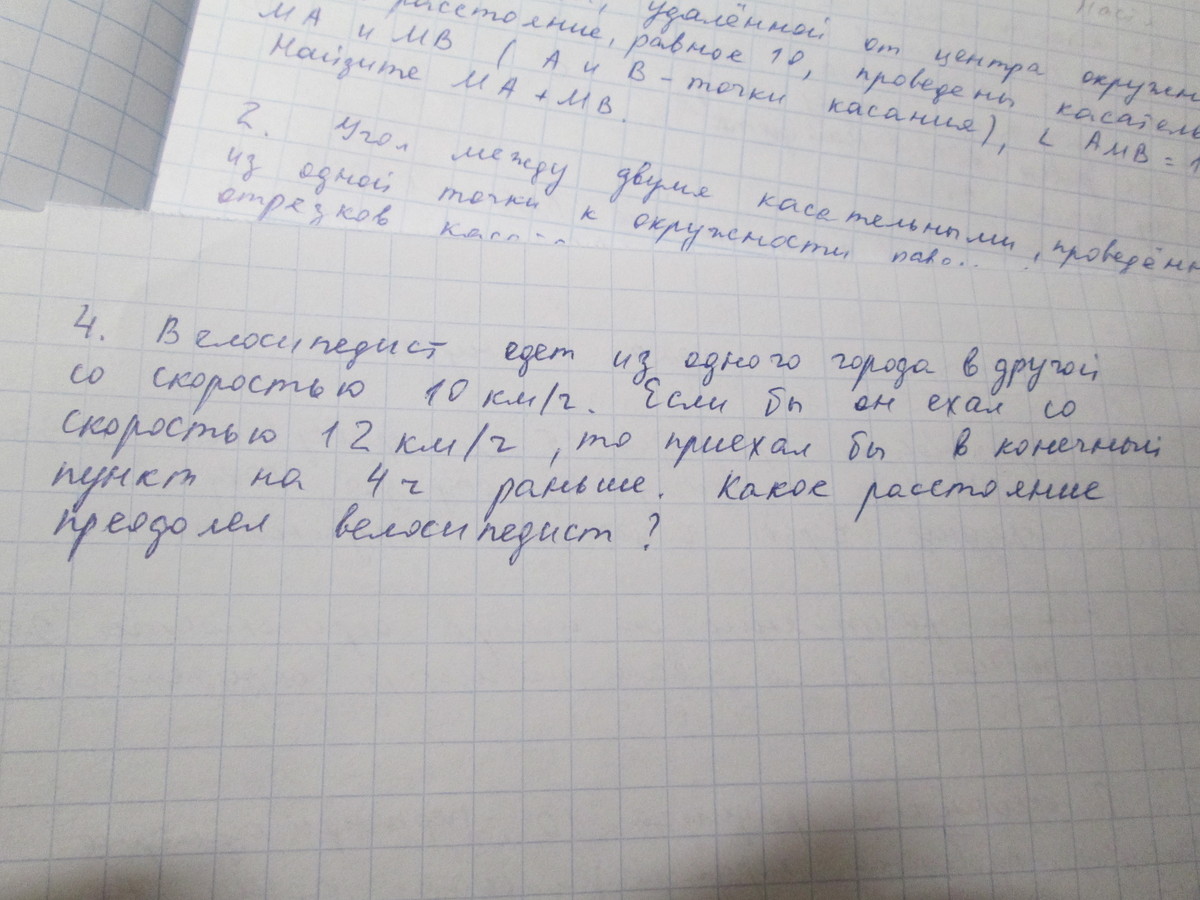 удалённой от центра
расстояние, равное 10, проведены
МА и МВ ( А и В - точки касания), ∠ АМВ =
Найдите МА + МВ.
2. Угол между двумя касательными,
из одной точки к окружности
отрезков
4. Велосипедист едет из одного города в другой
со скоростью 10 км/ч. Если бы он ехал со
скоростью 12 км/ч, то приехал бы в конечный
пункт на 4 ч раньше. Какое расстояние
преодолел велосипедист?